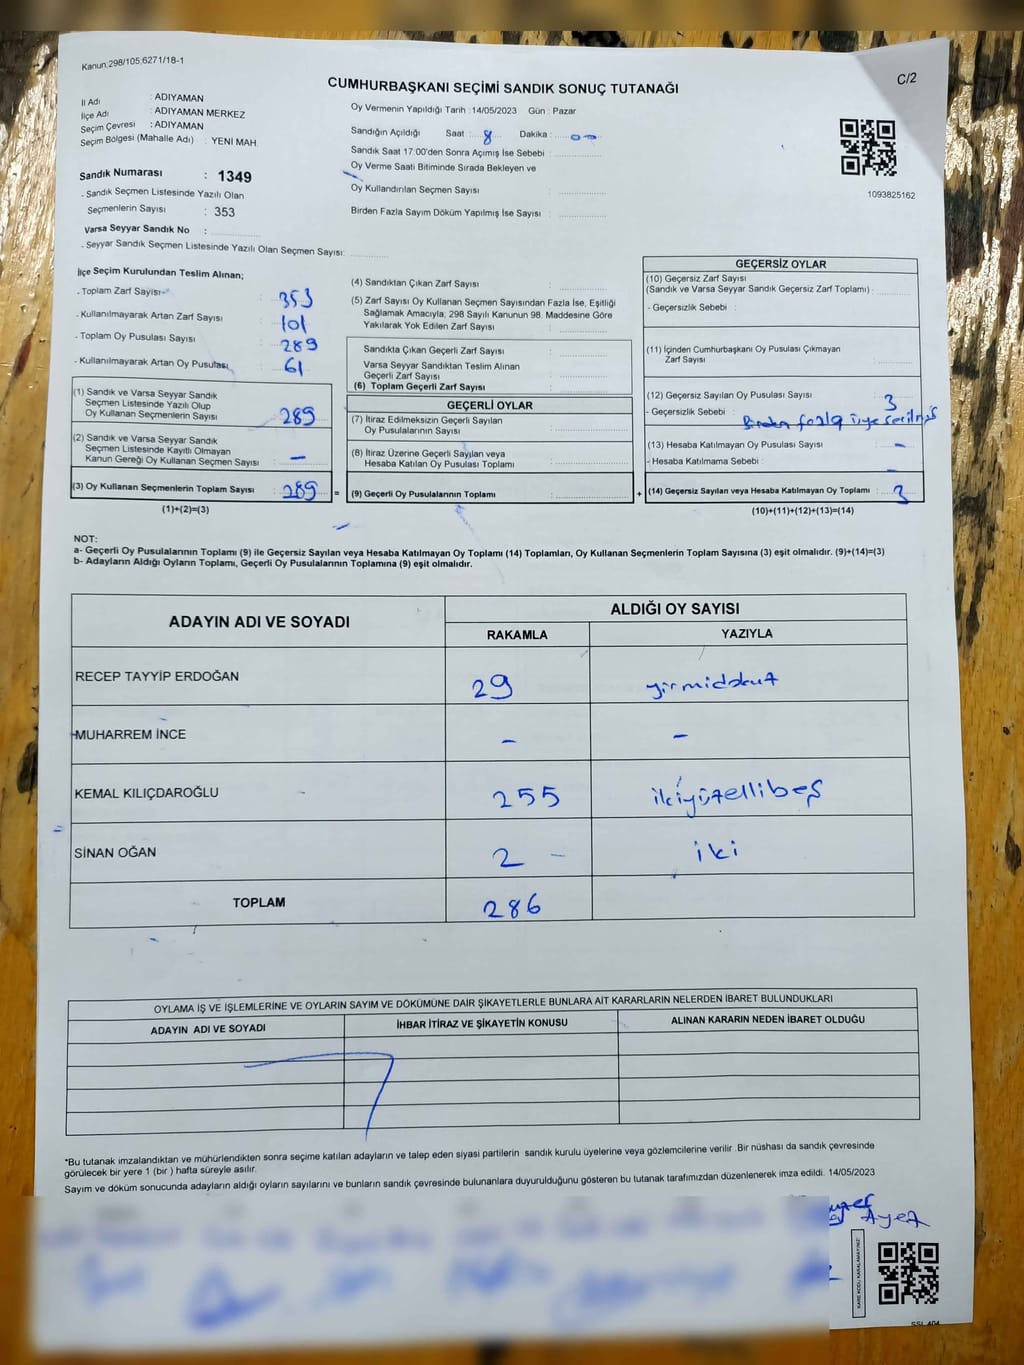 Kanun:298/105;6271/18-1
C/2
CUMHURBAŞKANI SEÇİMİ SANDIK SONUÇ TUTANAĞI
İl Adı : ADIYAMAN
İlçe Adı : ADIYAMAN MERKEZ
Seçim Çevresi : ADIYAMAN
Seçim Bölgesi (Mahalle Adı) : YENİ MAH.
Sandık Numarası : 1349
- Sandık Seçmen Listesinde Yazılı Olan
Seçmenlerin Sayısı : 353
Varsa Seyyar Sandık No :
- Seyyar Sandık Seçmen Listesinde Yazılı Olan Seçmen Sayısı:
Oy Vermenin Yapıldığı Tarih : 14/05/2023 Gün : Pazar
Sandığın Açıldığı Saat : 8 Dakika : 00
Sandık Saat 17:00'den Sonra Açımış İse Sebebi :
Oy Verme Saati Bitiminde Sırada Bekleyen ve
Oy Kullandırılan Seçmen Sayısı :
Birden Fazla Sayım Döküm Yapılmış İse Sayısı :
1093825162
İlçe Seçim Kurulundan Teslim Alınan;
- Toplam Zarf Sayısı : 353
- Kullanılmayarak Artan Zarf Sayısı : 101
- Toplam Oy Pusulası Sayısı : 289
- Kullanılmayarak Artan Oy Pusulası : 61
(1) Sandık ve Varsa Seyyar Sandık
Seçmen Listesinde Yazılı Olup
Oy Kullanan Seçmenlerin Sayısı : 289
(2) Sandık ve Varsa Seyyar Sandık
Seçmen Listesinde Kayıtlı Olmayan
Kanun Gereği Oy Kullanan Seçmen Sayısı : -
(3) Oy Kullanan Seçmenlerin Toplam Sayısı : 289 =
(1)+(2)=(3)
(4) Sandıktan Çıkan Zarf Sayısı :
(5) Zarf Sayısı Oy Kullanan Seçmen Sayısından Fazla İse, Eşitliği
Sağlamak Amacıyla, 298 Sayılı Kanunun 98. Maddesine Göre
Yakılarak Yok Edilen Zarf Sayısı :
Sandıkta Çıkan Geçerli Zarf Sayısı :
Varsa Seyyar Sandıktan Teslim Alınan
Geçerli Zarf Sayısı :
(6) Toplam Geçerli Zarf Sayısı :
GEÇERLİ OYLAR
(7) İtiraz Edilmeksizin Geçerli Sayılan
Oy Pusulalarının Sayısı :
(8) İtiraz Üzerine Geçerli Sayılan veya
Hesaba Katılan Oy Pusulası Toplamı :
(9) Geçerli Oy Pusulalarının Toplamı : +
GEÇERSİZ OYLAR
(10) Geçersiz Zarf Sayısı
(Sandık ve Varsa Seyyar Sandık Geçersiz Zarf Toplamı) :
- Geçersizlik Sebebi :
(11) İçinden Cumhurbaşkanı Oy Pusulası Çıkmayan
Zarf Sayısı :
(12) Geçersiz Sayılan Oy Pusulası Sayısı : 3
- Geçersizlik Sebebi : Birden fazla
(13) Hesaba Katılmayan Oy Pusulası Sayısı : -
- Hesaba Katılmama Sebebi : -
(14) Geçersiz Sayılan veya Hesaba Katılmayan Oy Toplamı : 3
(10)+(11)+(12)+(13)=(14)
NOT:
a- Geçerli Oy Pusulalarının Toplamı (9) ile Geçersiz Sayılan veya Hesaba Katılmayan Oy Toplamı (14) Toplamları, Oy Kullanan Seçmenlerin Toplam Sayısına (3) eşit olmalıdır. (9)+(14)=(3)
b- Adayların Aldığı Oyların Toplamı, Geçerli Oy Pusulalarının Toplamına (9) eşit olmalıdır.
ADAYIN ADI VE SOYADI
ALDIĞI OY SAYISI
RAKAMLA YAZIYLA
RECEP TAYYİP ERDOĞAN 29 yirmidokuz
MUHARREM İNCE - -
KEMAL KILIÇDAROĞLU 255 ikiyüzellibeş
SİNAN OĞAN 2 - iki
TOPLAM 286
OYLAMA İŞ VE İŞLEMLERİNE VE OYLARIN SAYIM VE DÖKÜMÜNE DAİR ŞİKAYETLERLE BUNLARA AİT KARARLARIN NELERDEN İBARET BULUNDUKLARI
ADAYIN ADI VE SOYADI İHBAR İTİRAZ VE ŞİKAYETİN KONUSU ALINAN KARARIN NEDEN İBARET OLDUĞU
*Bu tutanak imzalandıktan ve mühürlendikten sonra seçime katılan adayların ve talep eden siyasi partilerin sandık kurulu üyelerine veya gözlemcilerine verilir. Bir nüshası da sandık çevresinde
görülecek bir yere 1 (bir) hafta süreyle asılır.
Sayım ve döküm sonucunda adayların aldığı oyların sayılarını ve bunların sandık çevresinde bulunanlara duyurulduğunu gösteren bu tutanak tarafımızdan düzenlenerek imza edildi. 14/05/2023
KARE KODU KARALAMAYINIZ!